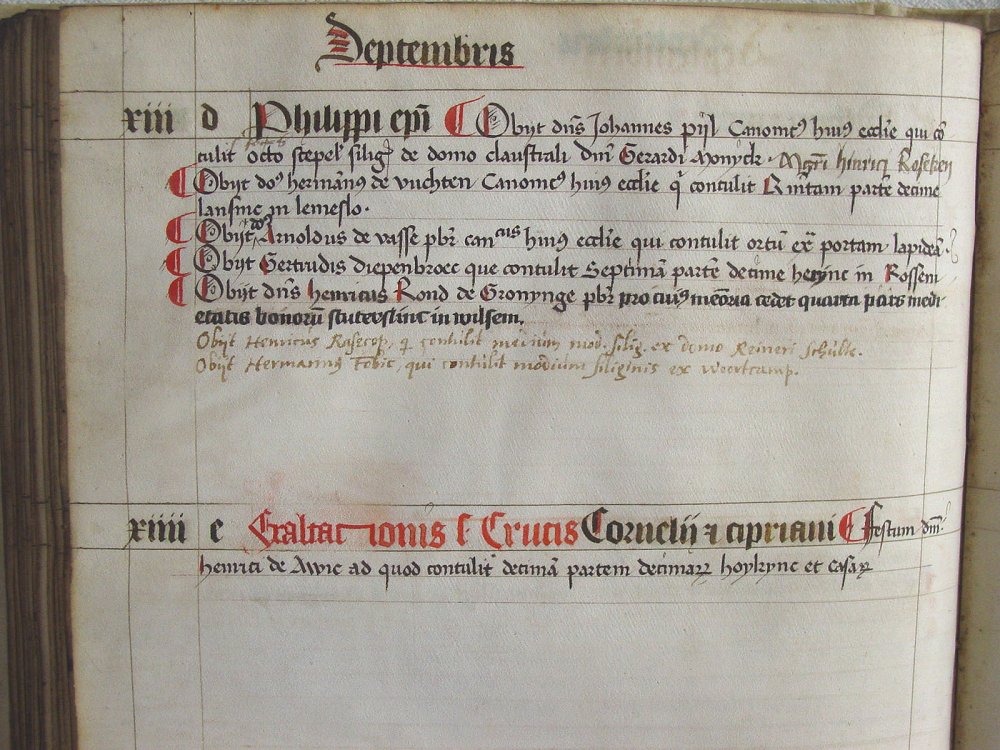 Septembris
xiii d Philippi ep̄i ¶ Obijt dn̄s Johannes pijl Canonic⁹ hui⁹ eccl̄ie qui cō
tulit octo stepel' siliḡ de domo claustrali dn̄i Gerardi Monijck. Mgr̄i hinrici Roseken
¶ Obijt do⁹ herman̄us de vuchten Canonic⁹ hui⁹ eccl̄ie q̄ contulit partē decime
lansinc in lemeslo.
¶ Obijt do⁹ Arnoldus de vasse pbr̄ can cus hui⁹ eccl̄ie qui contulit ortū ex̄ portam lapideā
¶ Obijt Gertrudis diepenbroec que contulit Septimā partē decime heync in Rosseni
¶ Obijt dn̄s henricus Rond de Gronynge pbr̄ pro cui⁹ mēoria cedet quarta pars medi
etatis bonorū stuvesslinc in wilsem.
Obijt Henricus Rasecop, q̄ contulit medium mod. silig. ex domo Reineri Schulte.
Obijt Hermann⁹ Fobic, qui contulit modium siliginis ex Weertcamp.
xiiii e Exaltationis s̄ Crucis Cornelij ⁊ cipriani ¶ Festum dn̄i
henrici de Awic ad quod contulit decimā partem decimaꝝ hoykync et casaꝝ